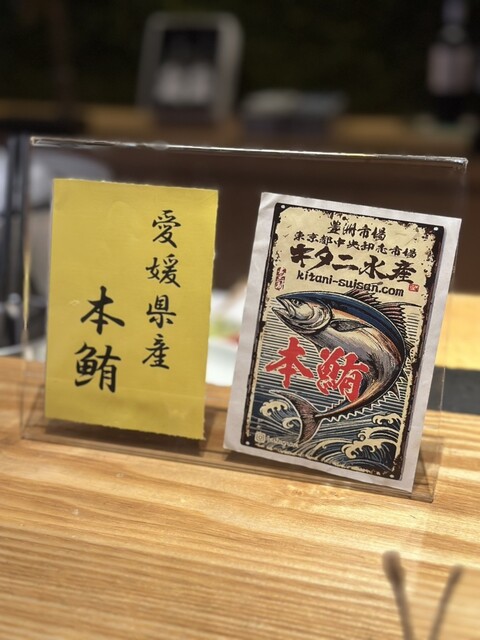 愛媛県産
本鮪
豊洲市場
東京都中央卸売市場
キタニ水産
kitani-suisan.com
本鮪